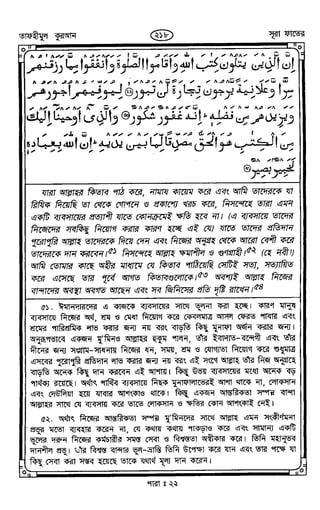 তাফহীমুল কুরআন
২১৮
সূরা ফাতের
إِنَّ الَّذِينَ يَتْلُونَ كِتٰبَ اللهِ وَأَقَامُوا الصَّلٰوةَ وَأَنْفَقُوا مِمَّا رَزَقْنٰهُمْ
سِرًّا وَّعَلَانِيَةً يَّرْجُونَ تِجَارَةً لَّنْ تَبُورَ ۝ لِيُوَفِّيَهُمْ أُجُورَهُمْ
وَيَزِيدَهُمْ مِّنْ فَضْلِهٖ إِنَّهٗ غَفُورٌ شَكُورٌ ۝ وَالَّذِي أَوْحَيْنَا إِلَيْكَ
مِنَ الْكِتٰبِ هُوَ الْحَقُّ مُصَدِّقًا لِّمَا بَيْنَ يَدَيْهِ إِنَّ اللهَ بِعِبَادِهٖ
لَخَبِيرٌ بَصِيرٌ ۝
যারা আল্লাহর কিতাব পাঠ করে, নামায কায়েম করে এবং আমি তাদেরকে যা
রিযিক দিয়েছি তা থেকে গোপনে ও প্রকাশ্যে খরচ করে, নিসন্দেহে তারা এমন
একটি ব্যবসায়ের প্রত্যাশী যাতে কোনক্রমেই ক্ষতি হবে না। (এ ব্যবসায়ে তাদের
নিজেদের সবকিছু নিয়োগ করার কারণ হচ্ছে এই যে) যাতে তাদের প্রতিদান
পুরোপুরি আল্লাহ তাদেরকে দিয়ে দেন এবং নিজের অনুগ্রহ থেকে আরো বেশী করে
তাদেরকে দান করবেন।৫১ নিসন্দেহে আল্লাহ ক্ষমাশীল ও গুণগ্রাহী।৫২ (হে নবী!)
আমি তোমার কাছে অহীর মাধ্যমে যে কিতাব পাঠিয়েছি সেটিই সত্য, সত্যায়িত
করে এসেছে তার পূর্বে আগত কিতাবগুলোকে।৫৩ অবশ্যই আল্লাহ নিজের
বান্দাদের অবস্থা অবগত আছেন এবং সব জিনিসের প্রতি দৃষ্টি রাখেন।৫৪
৫১. ঈমানদারদের এ কাজকে ব্যবসায়ের সাথে তুলনা করা হচ্ছে। কারণ মানুষ
ব্যবসায়ে নিজের অর্থ, শ্রম ও মেধা নিয়োগ করে কেবলমাত্র আসল ফেরত পাবার এবং
শ্রমের পারিশ্রমিক লাভ করার জন্য নয় বরং বাড়তি কিছু মুনাফা অর্জন করার জন্য।
অনুরূপভাবে একজন মু'মিনও আল্লাহর হুকুম পালন, তাঁর ইবাদাত-বন্দেগী এবং তাঁর
দীনের জন্য সংগ্রাম-সাধনায় নিজের ধন, সময়, শ্রম ও যোগ্যতা নিয়োগ করে শুধুমাত্র
এসবের পুরোপুরি প্রতিদান লাভ করার জন্য নয় বরং এই সংগে আল্লাহ তাঁর নিজ অনুগ্রহে
বাড়তি অনেক কিছু দান করবেন এই আশায়। কিন্তু উভয় ব্যবসায়ের মধ্যে অনেক বড়
পার্থক্য রয়েছে। অর্থাৎ পার্থিব ব্যবসায়ে নিছক মুনাফালাভেরই আশা থাকে না, লোকসান
এবং দেউলিয়া হয়ে যাবার আশংকাও থাকে। কিন্তু একজন আন্তরিকতা সম্পন্ন বান্দা
আল্লাহর সাথে যে ব্যবসায় করে তাতে লোকসান ও ক্ষতির কোন আশংকাই নেই।
৫২. অর্থাৎ নিজের আন্তরিকতা সম্পন্ন মু'মিনদের সাথে আল্লাহ এমন সংকীর্ণমনা
প্রভুর মতো ব্যবহার করেন না, যে কথায় কথায় পাকড়াও করে এবং সামান্য একটি
ভুলের দরুন নিজের কর্মচারীর সমস্ত সেবা ও বিশ্বস্ততা অস্বীকার করে। তিনি মহানুভব
দানশীল প্রভু। তাঁর বিশ্বস্ত বান্দার ভুল-ভ্রান্তি তিনি উপেক্ষা করে যান এবং তার পক্ষে যা
কিছু সেবা করা সম্ভব হয়েছে তাকে যথার্থ মূল্য দান করেন।
পারা : ২২